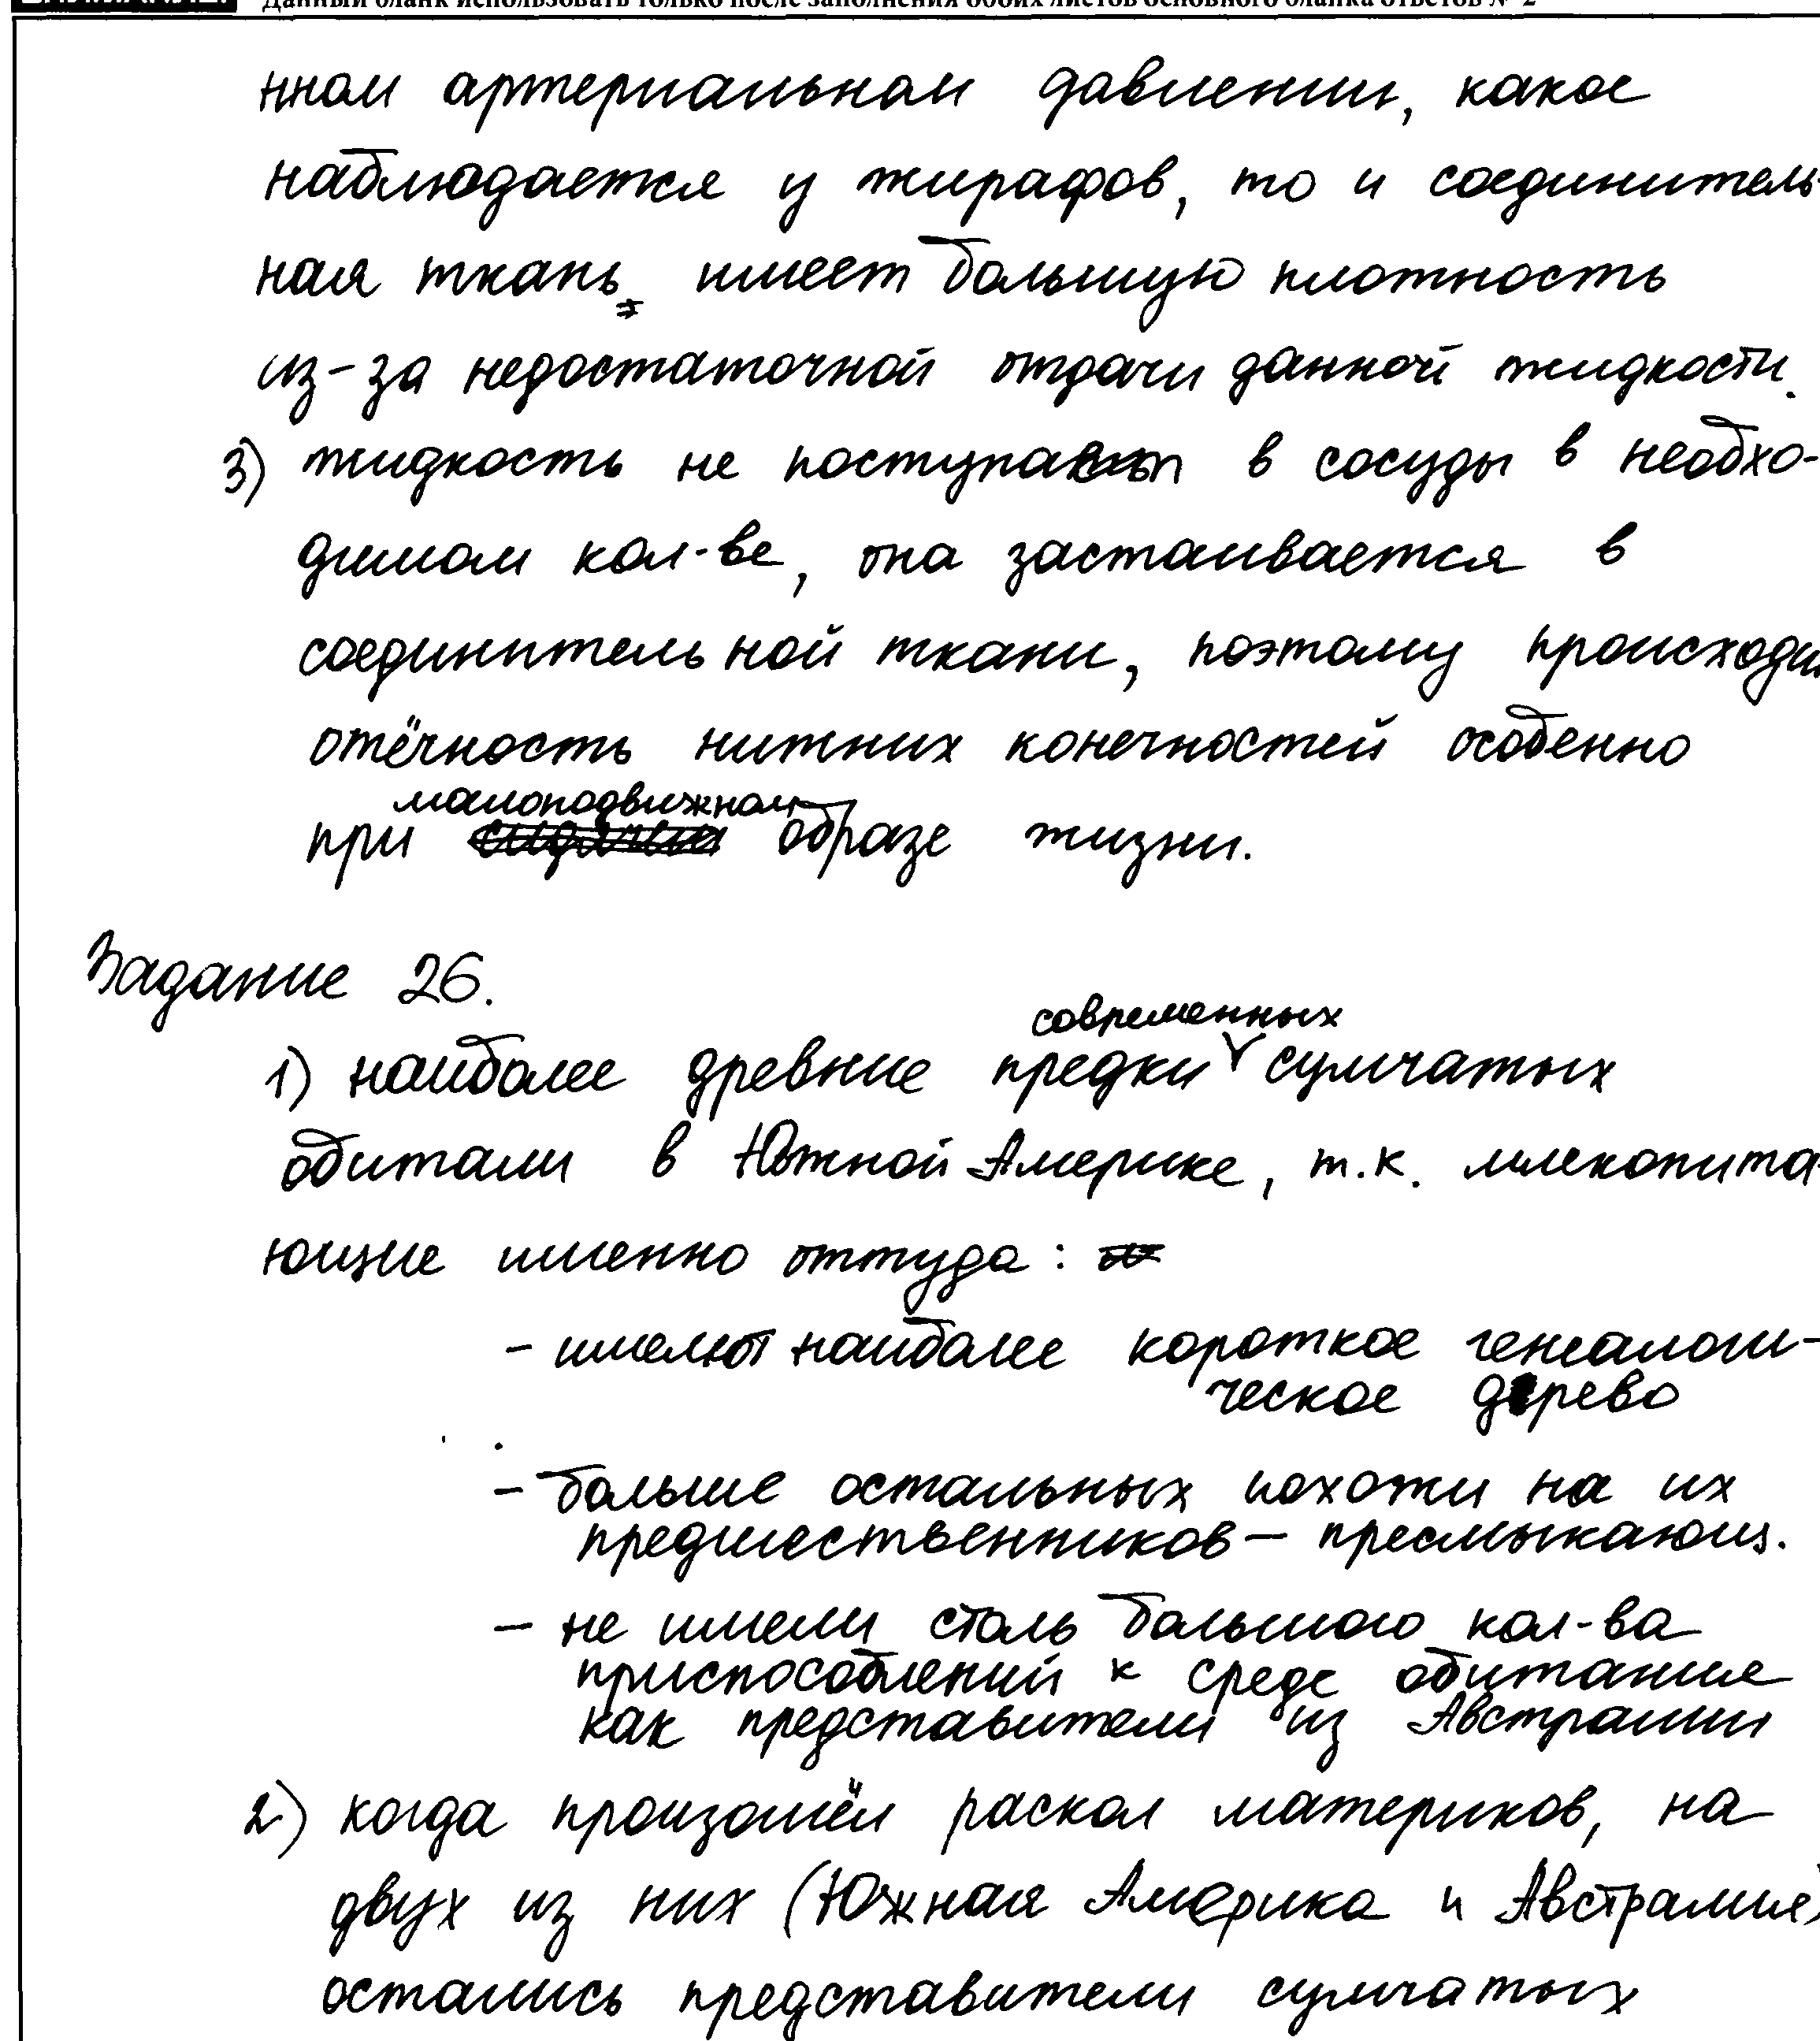 Данный бланк использовать только после заполнения обоих листов основного бланка ответов № 2
нном артериальном давлении, какое
наблюдается у жирафов, то и соединитель-
ная ткань имеет большую плотность
из-за недостаточной отдачи данной жидкости.
3) жидкость не поступает в сосуды в необхо-
димом кол-ве, она застаивается в
соединительной ткани, поэтому происходи
отёчность нижних конечностей особенно
малоподвижном
при образе жизни.
Задание 26.
современных
1) наиболее древние предки сумчатых
обитали в Южной Америке, т.к. млекопита-
ющие именно оттуда:
- имеют наиболее короткое генеалоги-
ческое дерево
- больше остальных похожи на их
предшественников - пресмыкающ.
- не имели столь большого кол-ва
приспособлений к среде обитание
как представители из Австралии
2) когда произошёл раскол материков, на
двух из них (Южная Америка и Австралия)
остались представители сумчатых